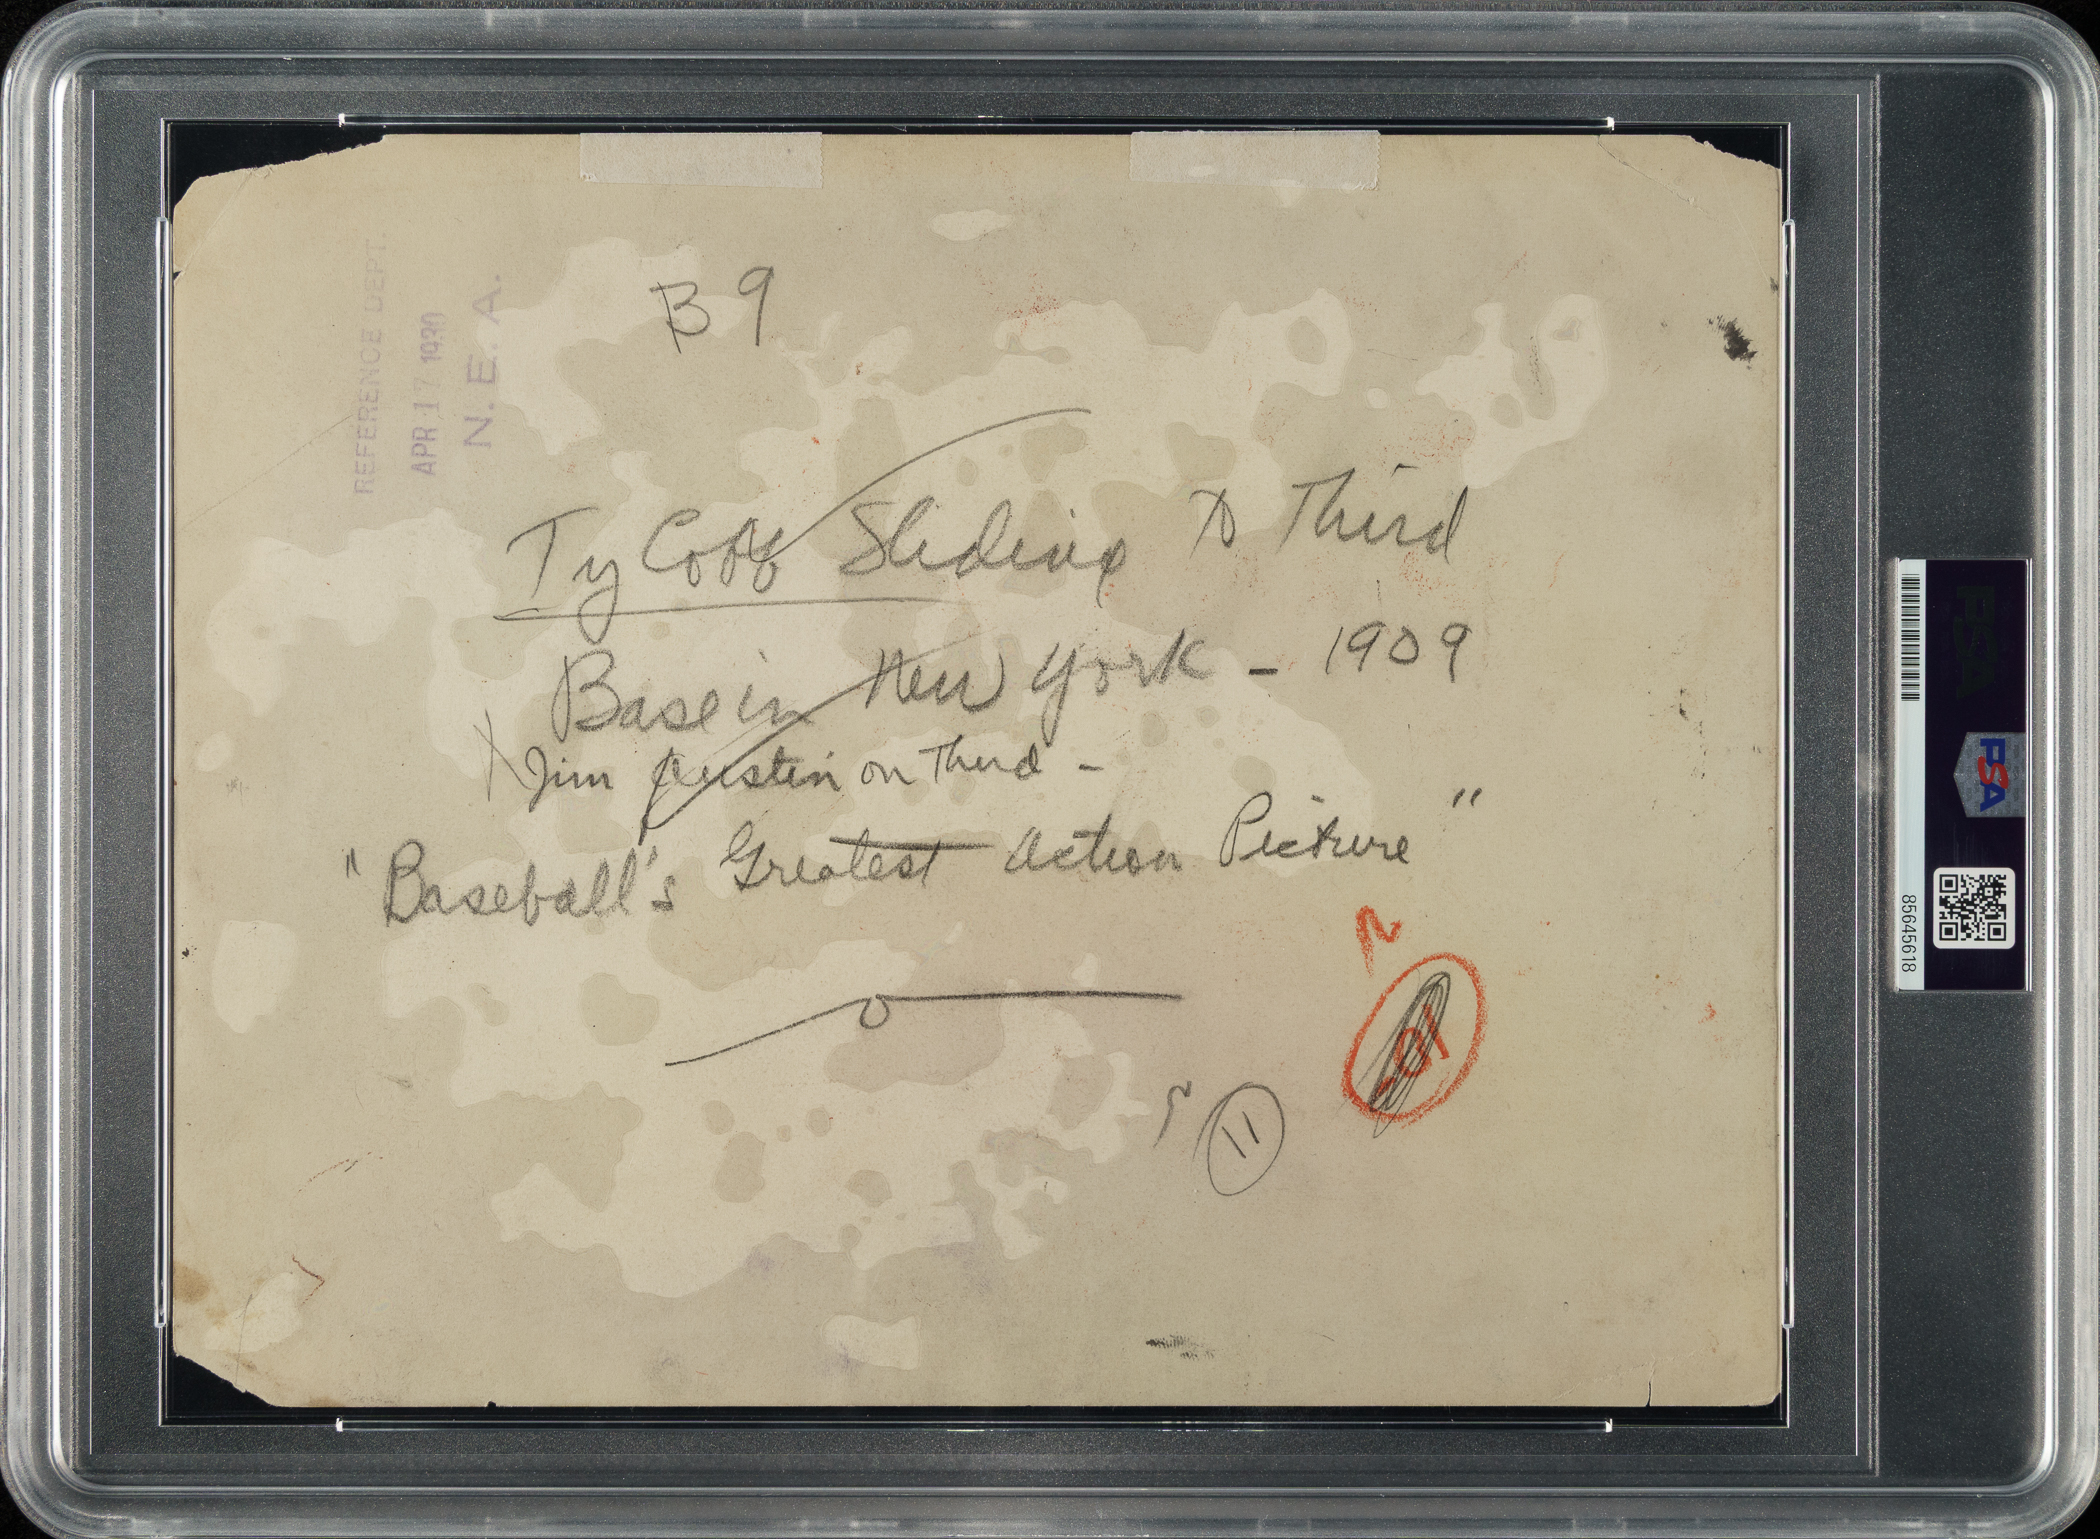 REFERENCE DEPT.
APR 17 1930
N. E. A.
B 9
Ty Cobb Sliding to Third
Base in New York - 1909
x Jim Austin on Third -
"Baseball's Greatest Action Picture"
11
PSA
85645618